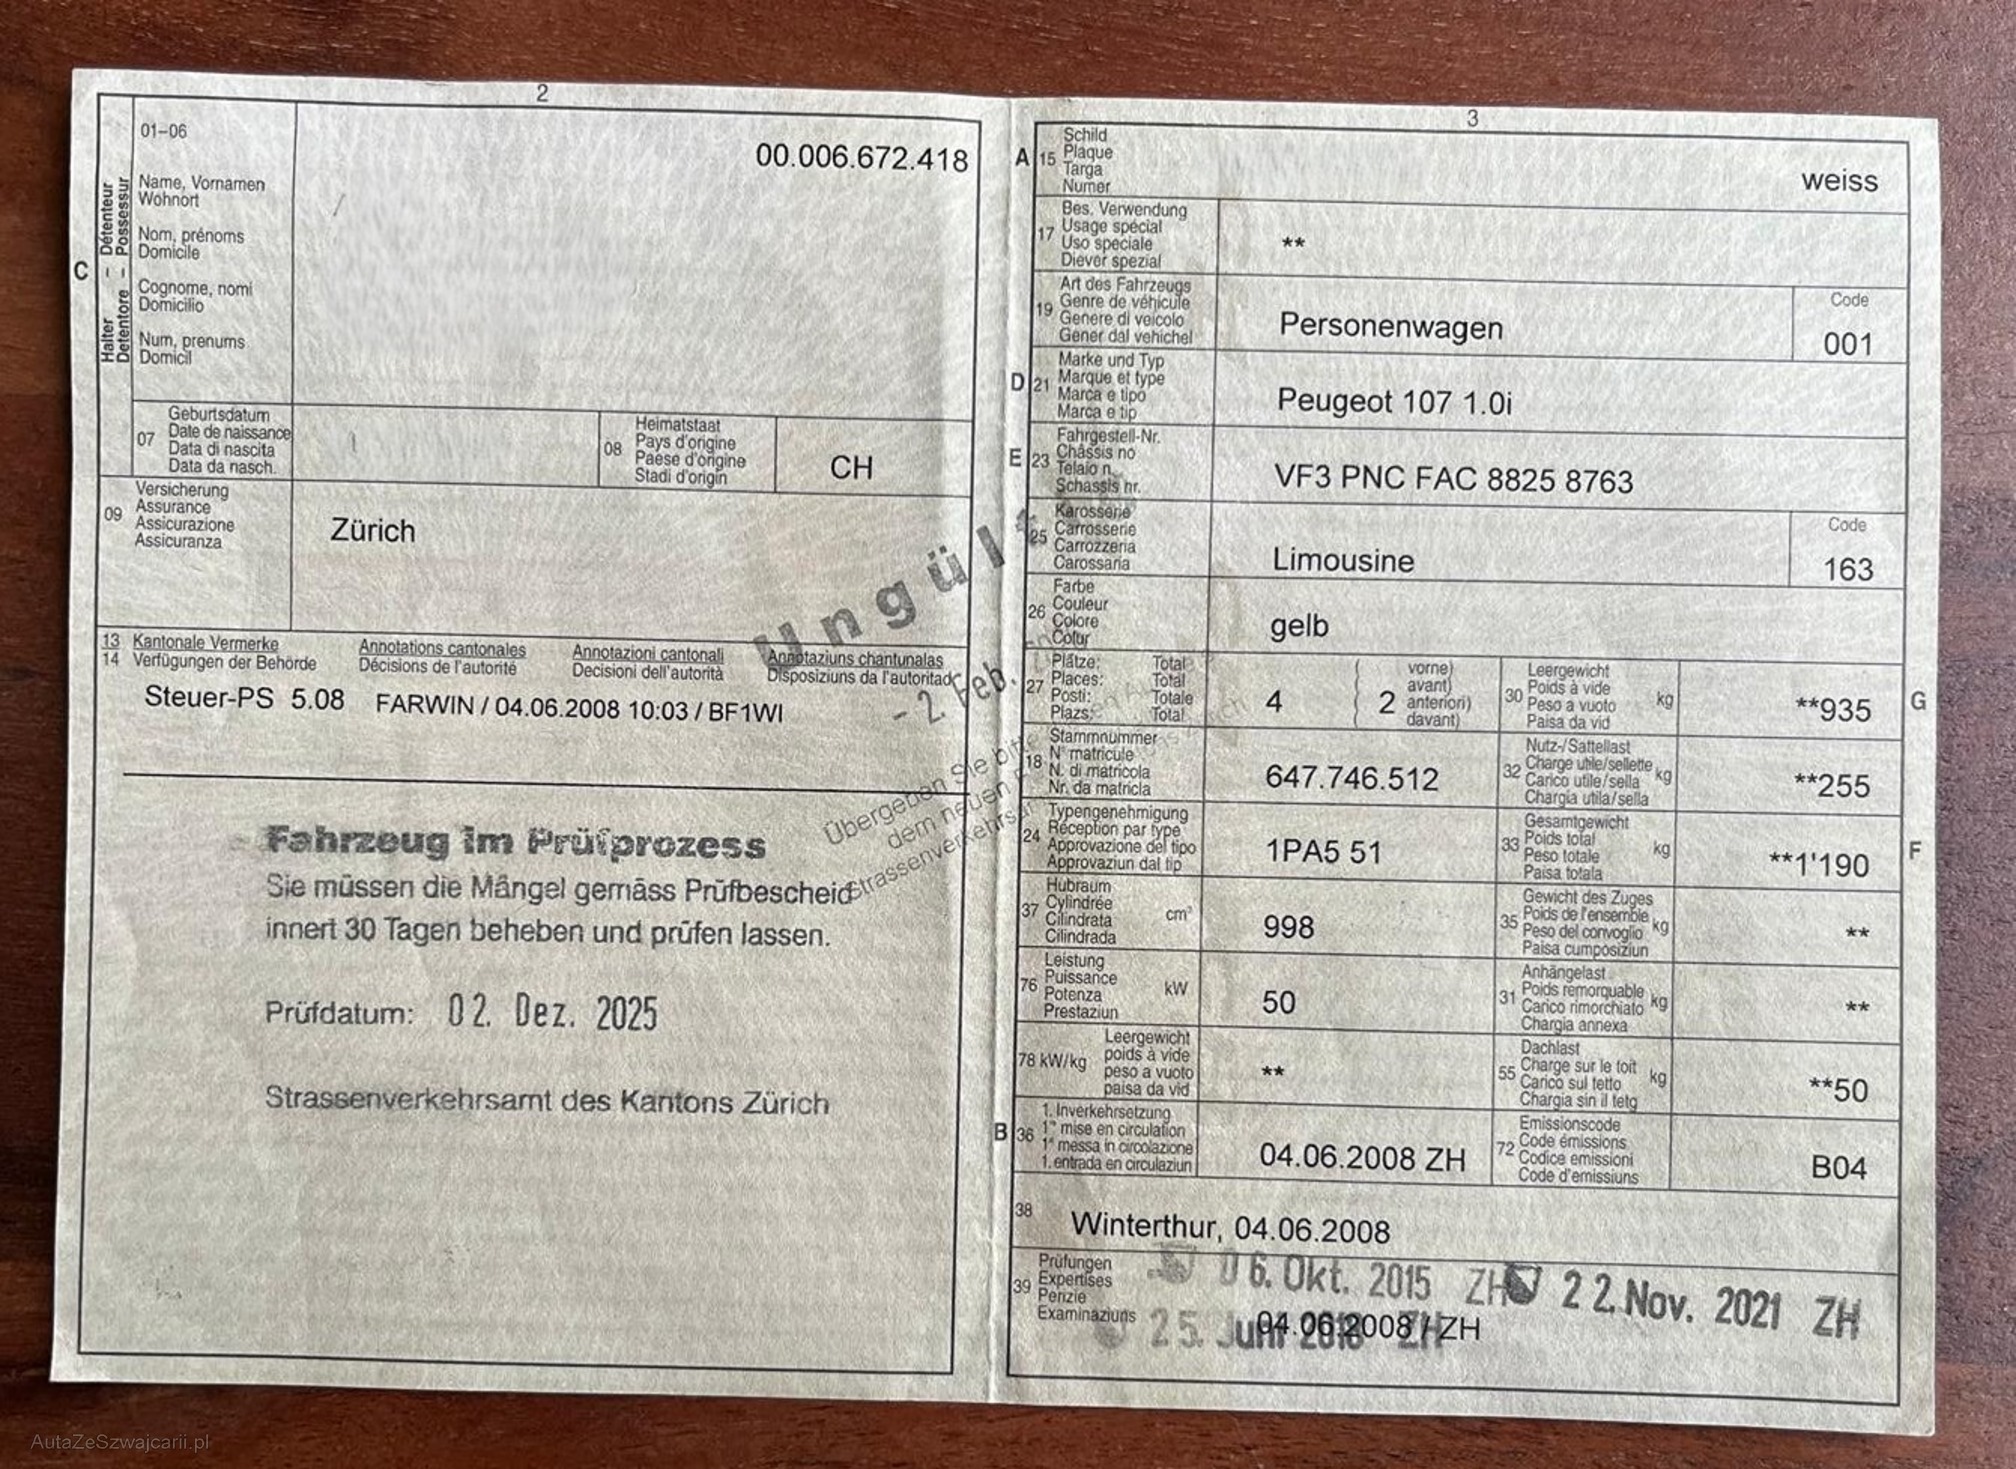 2
01-06
00.006.672.418
Halter – Détenteur
Detentore – Possessur
C
Name, Vornamen
Wohnort
Nom, prénoms
Domicile
Cognome, nomi
Domicilio
Num, prenums
Domicil
07
Geburtsdatum
Date de naissance
Data di nascita
Data da nasch.
08
Heimatstaat
Pays d'origine
Paese d'origine
Stadi d'origin
CH
09
Versicherung
Assurance
Assicurazione
Assicuranza
Zürich
13 Kantonale Vermerke Annotations cantonales Annotazioni cantonali Annotaziuns chantunalas
14 Verfügungen der Behörde Décisions de l'autorité Decisioni dell'autorità Disposiziuns da l'autoritad
Steuer-PS 5.08 FARWIN / 04.06.2008 10:03 / BF1WI
Ungül
- 2. Feb.
Übergeben Sie bitte
dem neuen
Strassenverkehrsa
Fahrzeug im Prüfprozess
Sie müssen die Mängel gemäss Prüfbescheid
innert 30 Tagen beheben und prüfen lassen.
Prüfdatum: 02. Dez. 2025
Strassenverkehrsamt des Kantons Zürich
3
A 15
Schild
Plaque
Targa
Numer
weiss
17
Bes. Verwendung
Usage spécial
Uso speciale
Diever spezial
**
19
Art des Fahrzeugs
Genre de véhicule
Genere di veicolo
Gener dal vehichel
Personenwagen
Code
001
D 21
Marke und Typ
Marque et type
Marca e tipo
Marca e tip
Peugeot 107 1.0i
E 23
Fahrgestell-Nr.
Châssis no
Telaio n.
Schassis nr.
VF3 PNC FAC 8825 8763
25
Karosserie
Carrosserie
Carrozzeria
Carossaria
Limousine
Code
163
26
Farbe
Couleur
Colore
Colur
gelb
27
Plätze: Total
Places: Total
Posti: Totale
Plazs: Total
4
2
vorne)
avant)
anteriori)
davant)
30
Leergewicht
Poids à vide
Peso a vuoto
Paisa da vid
kg
**935
G
18
Stammnummer
N° matricule
N. di matricola
Nr. da matricla
647.746.512
32
Nutz-/Sattellast
Charge utile/sellette
Carico utile/sella
Chargia utila/sella
kg
**255
24
Typengenehmigung
Réception par type
Approvazione del tipo
Approvaziun dal tip
1PA5 51
33
Gesamtgewicht
Poids total
Peso totale
Paisa totala
kg
**1'190
F
37
Hubraum
Cylindrée
Cilindrata
Cilindrada
cm³
998
35
Gewicht des Zuges
Poids de l'ensemble
Peso del convoglio
Paisa cumposiziun
kg
**
76
Leistung
Puissance
Potenza
Prestaziun
kW
50
31
Anhängelast
Poids remorquable
Carico rimorchiato
Chargia annexa
kg
**
78 kW/kg
Leergewicht
poids à vide
peso a vuoto
paisa da vid
**
55
Dachlast
Charge sur le toit
Carico sul tetto
Chargia sin il tetg
kg
**50
B 36
1. Inverkehrsetzung
1re mise en circulation
1a messa in circolazione
1. entrada en circulaziun
04.06.2008 ZH
72
Emissionscode
Code émissions
Codice emissioni
Code d'emissiuns
B04
38
Winterthur, 04.06.2008
39
Prüfungen
Expertises
Perizie
Examinaziuns
06. Okt. 2015 ZH
22. Nov. 2021 ZH
25. Juni ZH
04.06.2008 / ZH
AutaZeSzwajcarii.pl